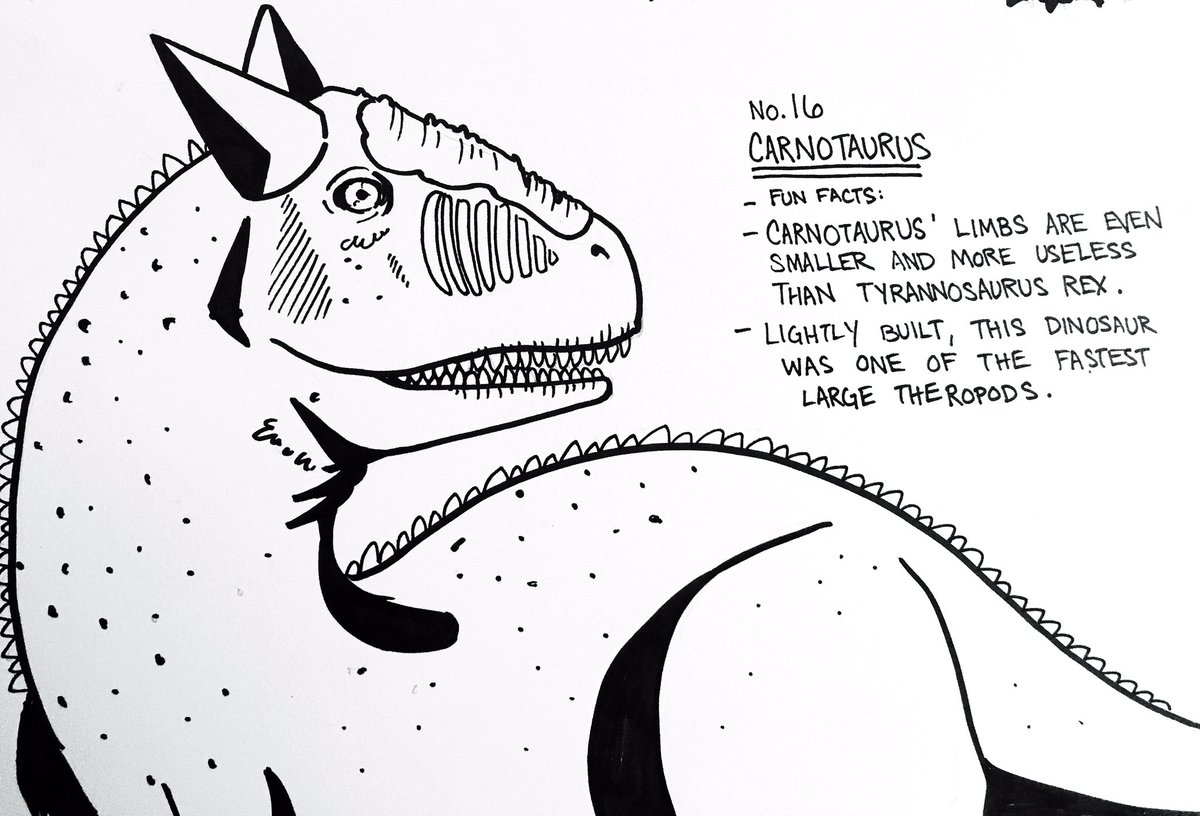 No. 16
CARNOTAURUS
- FUN FACTS:
- CARNOTAURUS' LIMBS ARE EVEN
SMALLER AND MORE USELESS
THAN TYRANNOSAURUS REX.
- LIGHTLY BUILT, THIS DINOSAUR
WAS ONE OF THE FASTEST
LARGE THEROPODS.